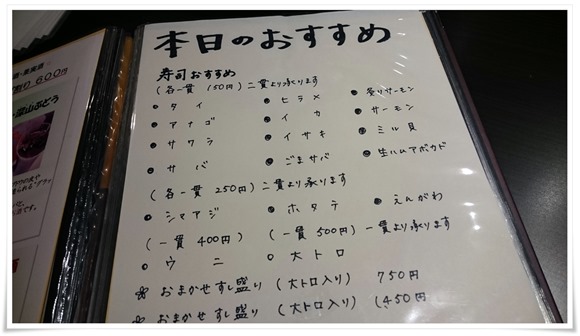 本日のおすすめ
寿司おすすめ
(各一貫 150円) 二貫より承ります
・タイ ・ヒラメ ・炙りサーモン
・アナゴ ・イカ ・サーモン
・サワラ ・イサキ ・ミル貝
・サバ ・ごまサバ ・生ハムアボカド
(各一貫 250円) 二貫より承ります
・シマアジ ・ホタテ ・えんがわ
(一貫 400円) (一貫 500円) 一貫より承ります
・ウニ ・大トロ
おまかせすし盛り (大トロ入り) 750円
おまかせすし盛り (大トロ入り) 1450円
600円
深山ぶどう